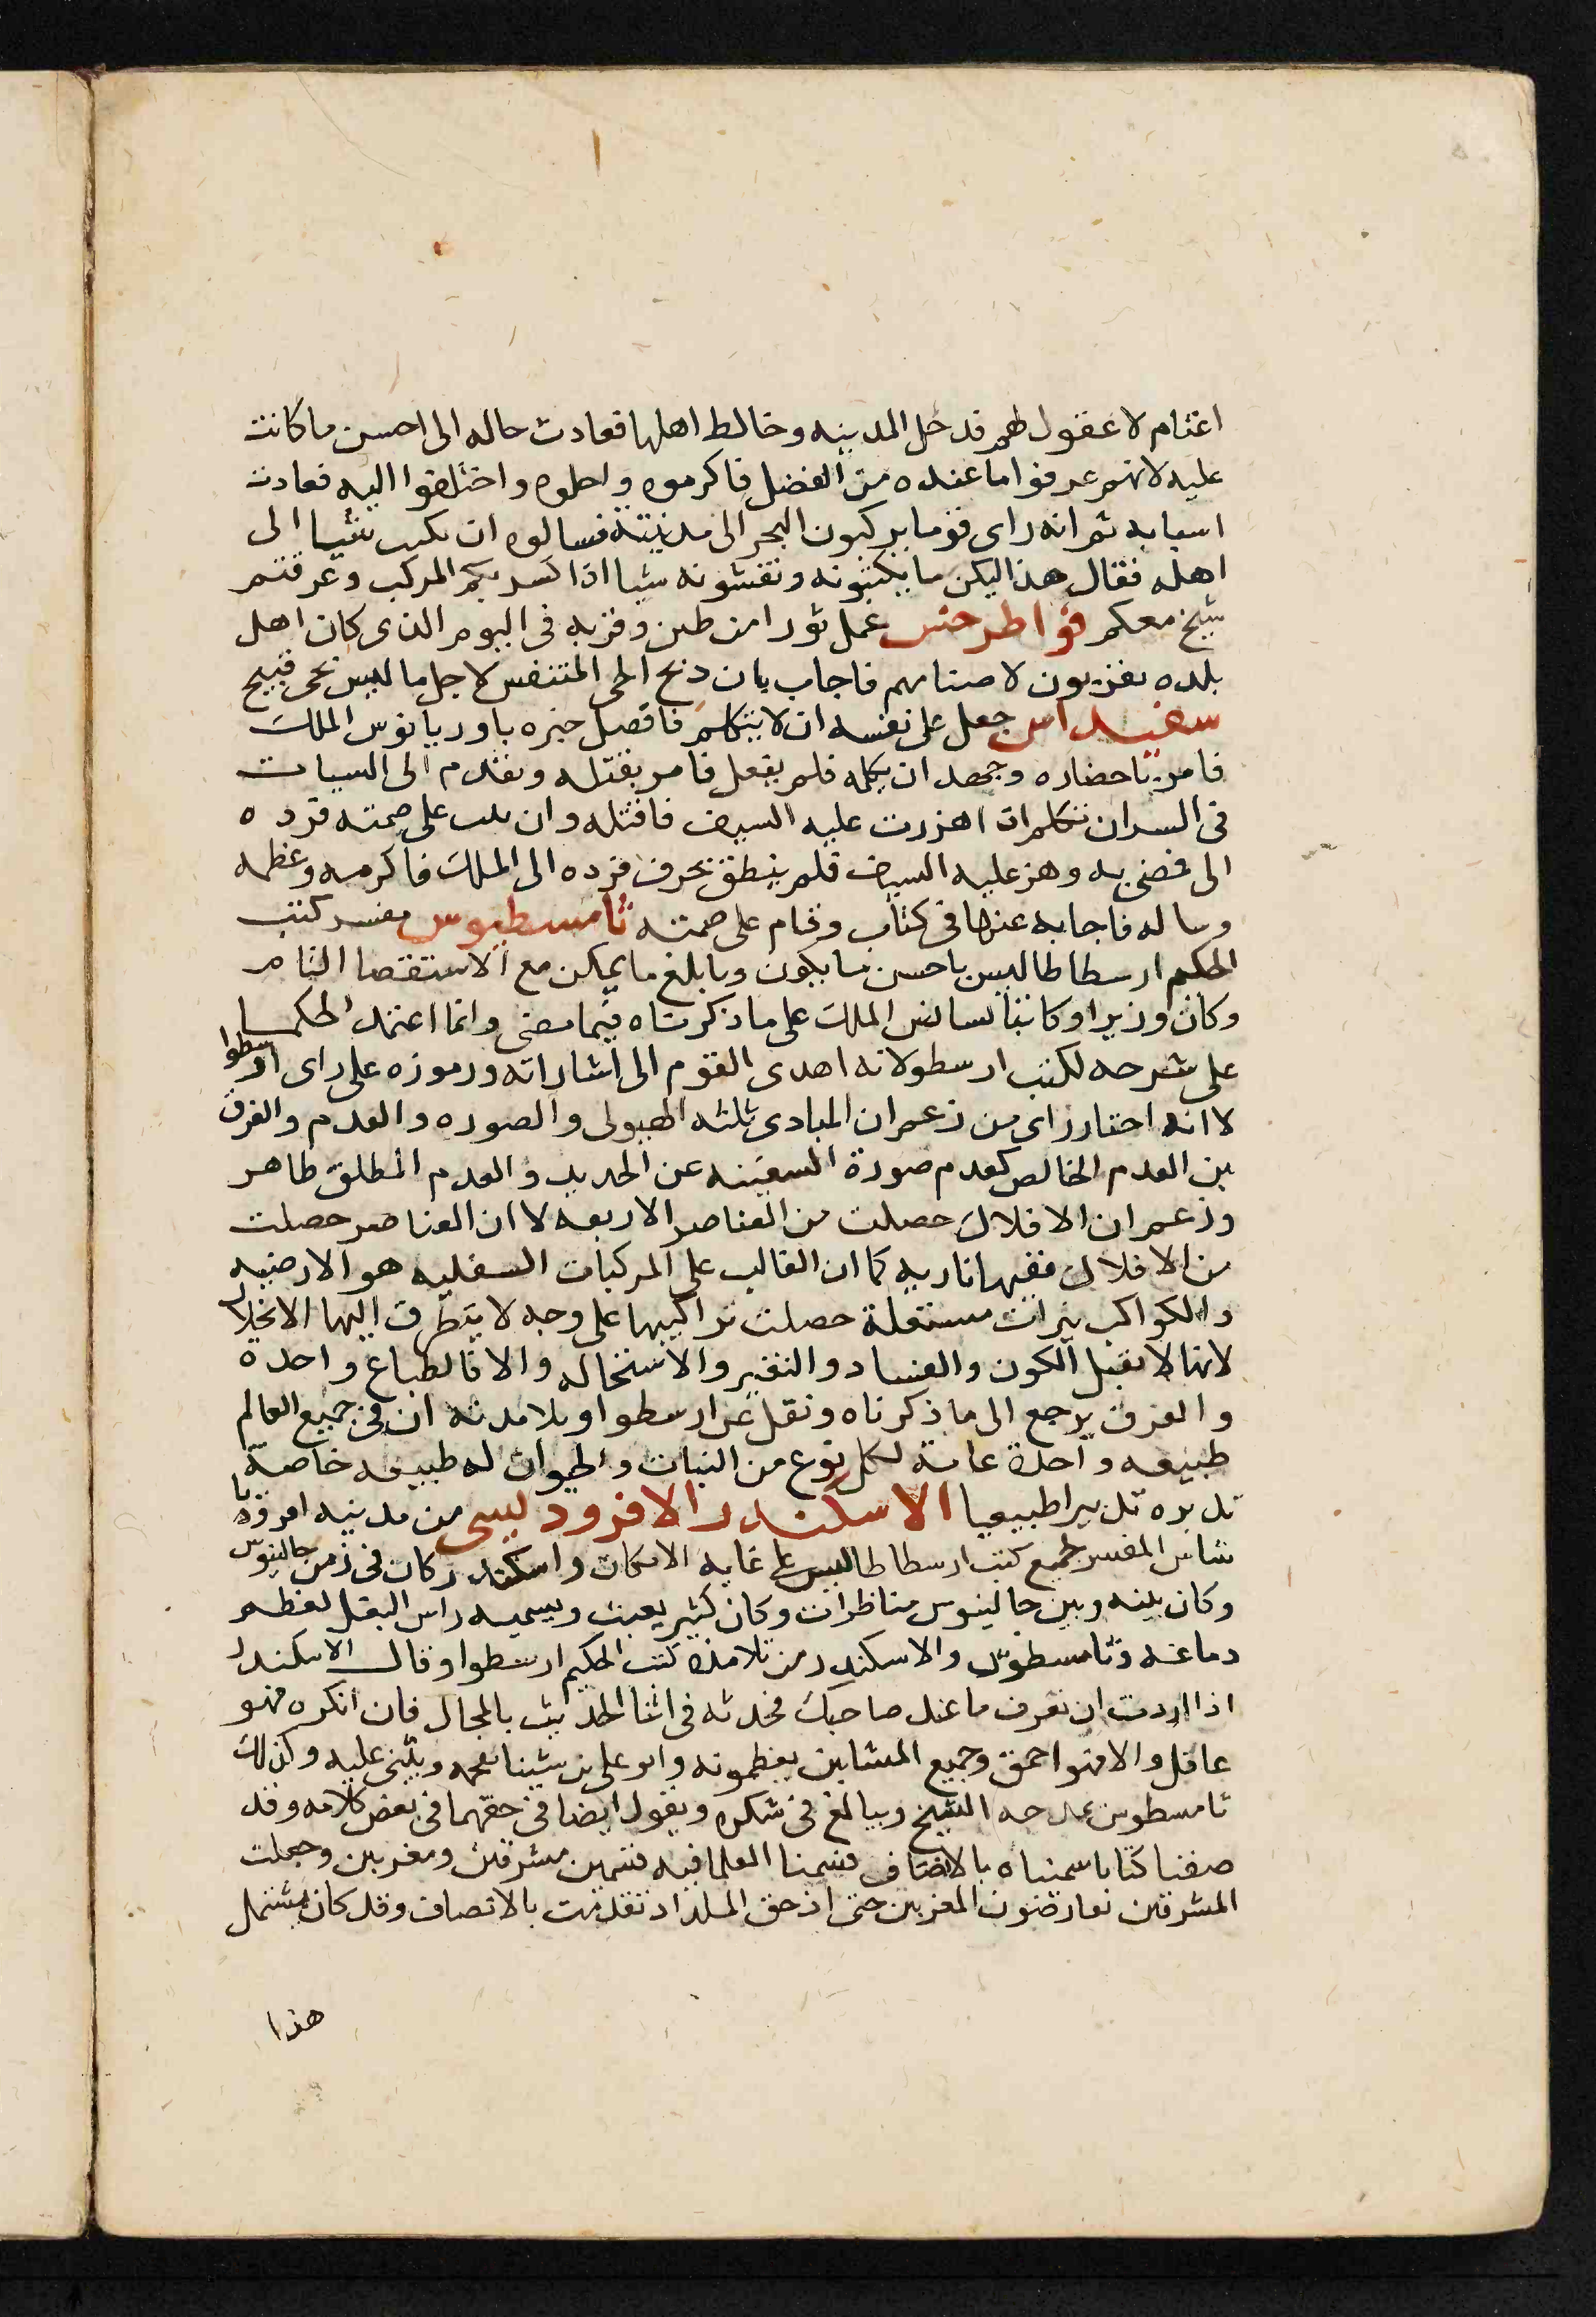 اغتام لا عقول لهم فدخل المدينه وخالط اهلها فعادت حاله الى احسن ما كانت
عليه لانهم عرفوا ما عنده من الفضل فاكرموه واحلوه واختلفوا اليه فعادت
اسبابه ثم انه راى قوما يركبون البحر الى مدينته فسالوه ان يكتب شيا الى
اهله فقال هذا ليكن ما يكتبونه ونقشونه شيا اذا كسر بكم المركب وغرقتم
شيخ معكم فواطرخس عمل ثورا من طين وقربه فى اليوم الذى كان اهل
بلده يقربون لاصنامهم فاجاب بان ذبح الحى المتنفس لاجل ما ليس بحى قبيح
سفيداس جعل على نفسه ان لا يتكلم فاتصل خبره باوريانوس الملك
فامر باحضاره وجهد ان يكلمه فلم يفعل فامر بقتله وتقدم الى السياف
فى السر ان تكلم اذا هززت عليه السيف فاقتله وان ثبت على صمته فرده
الى فمضى به وهز عليه السيف فلم ينطق بحرف فرده الى الملك فاكرمه وعظمه
وساله فاجابه عنها فى كتاب وقام على صمته ثامسطيوس مفسر كتب
الحكيم ارسطاطاليس باحسن ما يكون وبابلغ ما يمكن مع الاستقصا التام
وكان وزيرا وكاتبا لسانس الملك على ما ذكرناه فيما مضى وانما اعتمد الحكما
على شرحه لكتب ارسطو لانه اهدى القوم الى اشاراته ورموزه على راى ارسطوا
لا انه اختار راى من زعم ان المبادى ثلثه الهيولى والصوره والعدم والفرق
بين العدم الخالص كعدم صورة السفينه عن الحديد والعدم المطلق ظاهر
وزعم ان الافلاك حصلت من العناصر الاربعه لا ان العناصر حصلت
من الافلاك ففيها ناريه كما ان الغالب على المركبات السفليه هو الارضيه
والكواكب نيرات مستقلة حصلت تراكيبها على وجه لا يتطرق اليها الانحلال
لانها لا تقبل الكون والفساد والتغير والاستحاله والا فالطباع واحده
والفرق يرجع الى ما ذكرناه ونقل عن ارسطوا وتلامدته ان فى جميع العالم
طبيعه واحدة عامة لكل نوع من النبات والحيوان له طبيعه خاصة
تدبره تدبيرا طبيعيا الاسكندر الافروديسى من مدينه افروديا
شاس المفسر لجميع كتب ارسطاطاليس على غايه الامكان واسكندر كان فى زمن جالينوس
وكان بينه وبين جالينوس مناظرات وكان كثير يعبث ويسميه راس البغل لعظم
دماغه وثامسطوس والاسكندر من تلامذة كتب الحكيم ارسطوا وقال الاسكندر
اذا اردت ان تعرف ما عند صاحبك فحدثه فى اثنا الحديث بالمحال فان انكره فهو
عاقل والا فهو احمق وجميع المشايين يعظمونه وابو على بن سينا يفخمه ويثنى عليه وكذلك
ثامسطوس يمدحه الشيخ ويبالغ فى شكره ويقول ايضا فى حقهما فى بعض كلامه وقد
صنفنا كتابا سميناه بالانصاف قسمنا العلما فيه قسمين مشرقين ومغربين وجعلت
المشرقين يعارضون المغربين حتى اذ حق الملداد تقدمت بالانصاف وقد كان يشتمل
هذا